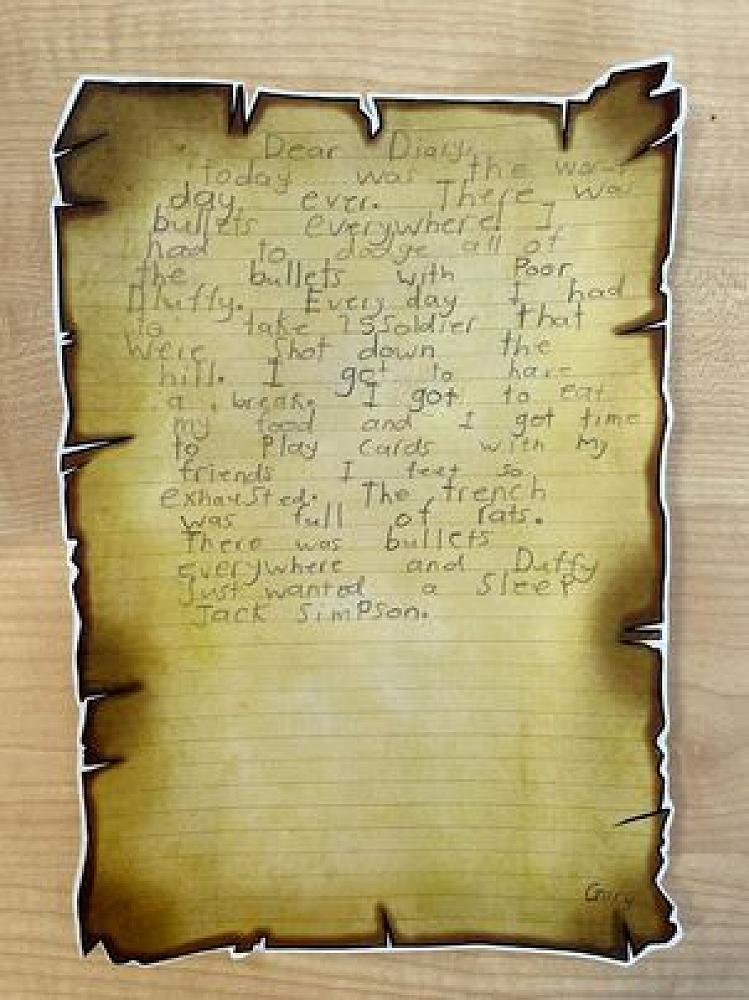 Dear Diary,
today was the worst
day ever. There was
bullets everywhere! I
had to dodge all of
the bullets with Poor
Duffy. Every day I had
to take 15 soldier that
were shot down the
hill. I got to have
a break. I got to eat
my food and I got time
to Play cards with my
friends I feel so
exhausted. The trench
was full of rats.
There was bullets
everywhere and Duffy
Just wanted a Sleep
Jack Simpson.